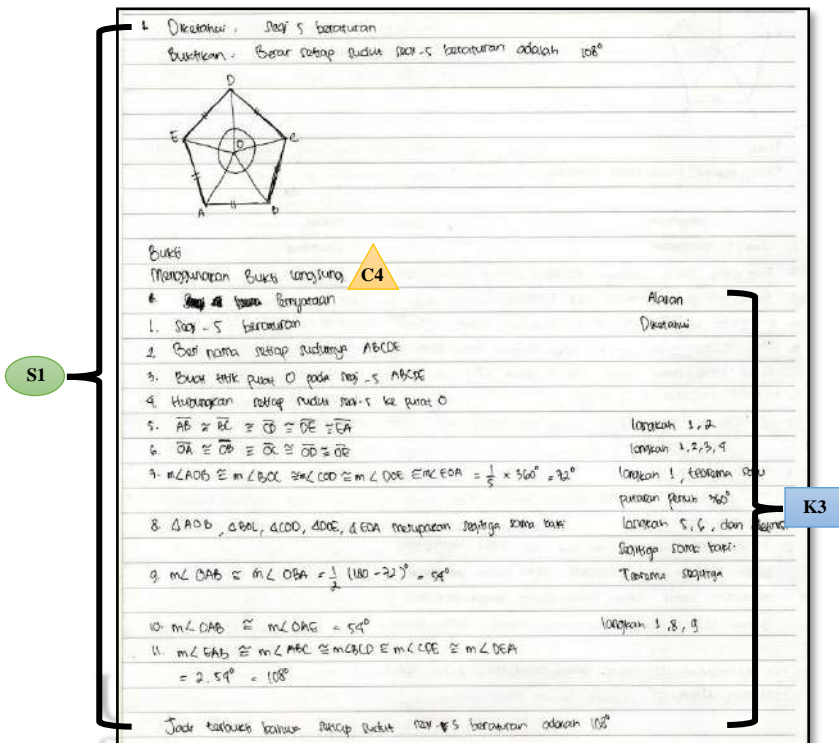 1 Diketahui : Segi 5 beraturan
Buktikan : Besar setiap sudut segi-5 beraturan adalah 108°
D
E
O
C
A
B
Bukti
Menggunakan Bukti langsung
C4
Pernyataan Alasan
1. Segi - 5 beraturan Diketahui
2 Beri nama setiap sudutnya ABCDE
3. Buat titik pusat O pada segi -5 ABCDE
4. Hubungkan setiap sudut segi-5 ke pusat O
S1
5. AB ≅ BC ≅ CD ≅ DE ≅ EA langkah 1, 2
6. OA ≅ OB ≅ OC ≅ OD ≅ OE langkah 1,2,3,4
7. m∠AOB ≅ m∠BOC ≅ m∠COD ≅ m∠DOE ≅ m∠EOA = 1/5 × 360° = 72° langkah 1, teorema satu
putaran penuh 360°
K3
8. ΔAOB, ΔBOC, ΔCOD, ΔDOE, ΔEOA merupakan segitiga sama kaki langkah 5, 6, dan definisi
segitiga sama kaki.
9. m∠OAB ≅ m∠OBA = 1/2 (180 - 72)° = 54° Teorema segitiga
10. m∠OAB ≅ m∠OAE = 54° langkah 1, 8, 9
11. m∠EAB ≅ m∠ABC ≅ m∠BCD ≅ m∠CDE ≅ m∠DEA
= 2.54° = 108°
Jadi terbukti bahwa setiap sudut segi-5 beraturan adalah 108°